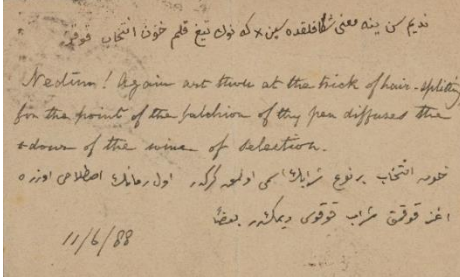 نديم سن ينه معنى شكافلقده سين × كه نوك تيغ قلم خون انتخاب قوقر
Nedim! Again art thou at the trick of hair-splitting
for the point of the falchion of thy pen diffuses the
odour of the wine of selection.
خون انتخاب بر نوع شرابك اسمى اولمه كركدر اول زمانك اصطلاحى اوزره
اغز قوقمق شراب قوقوسى ديمكدر بعضاً
11/6/88